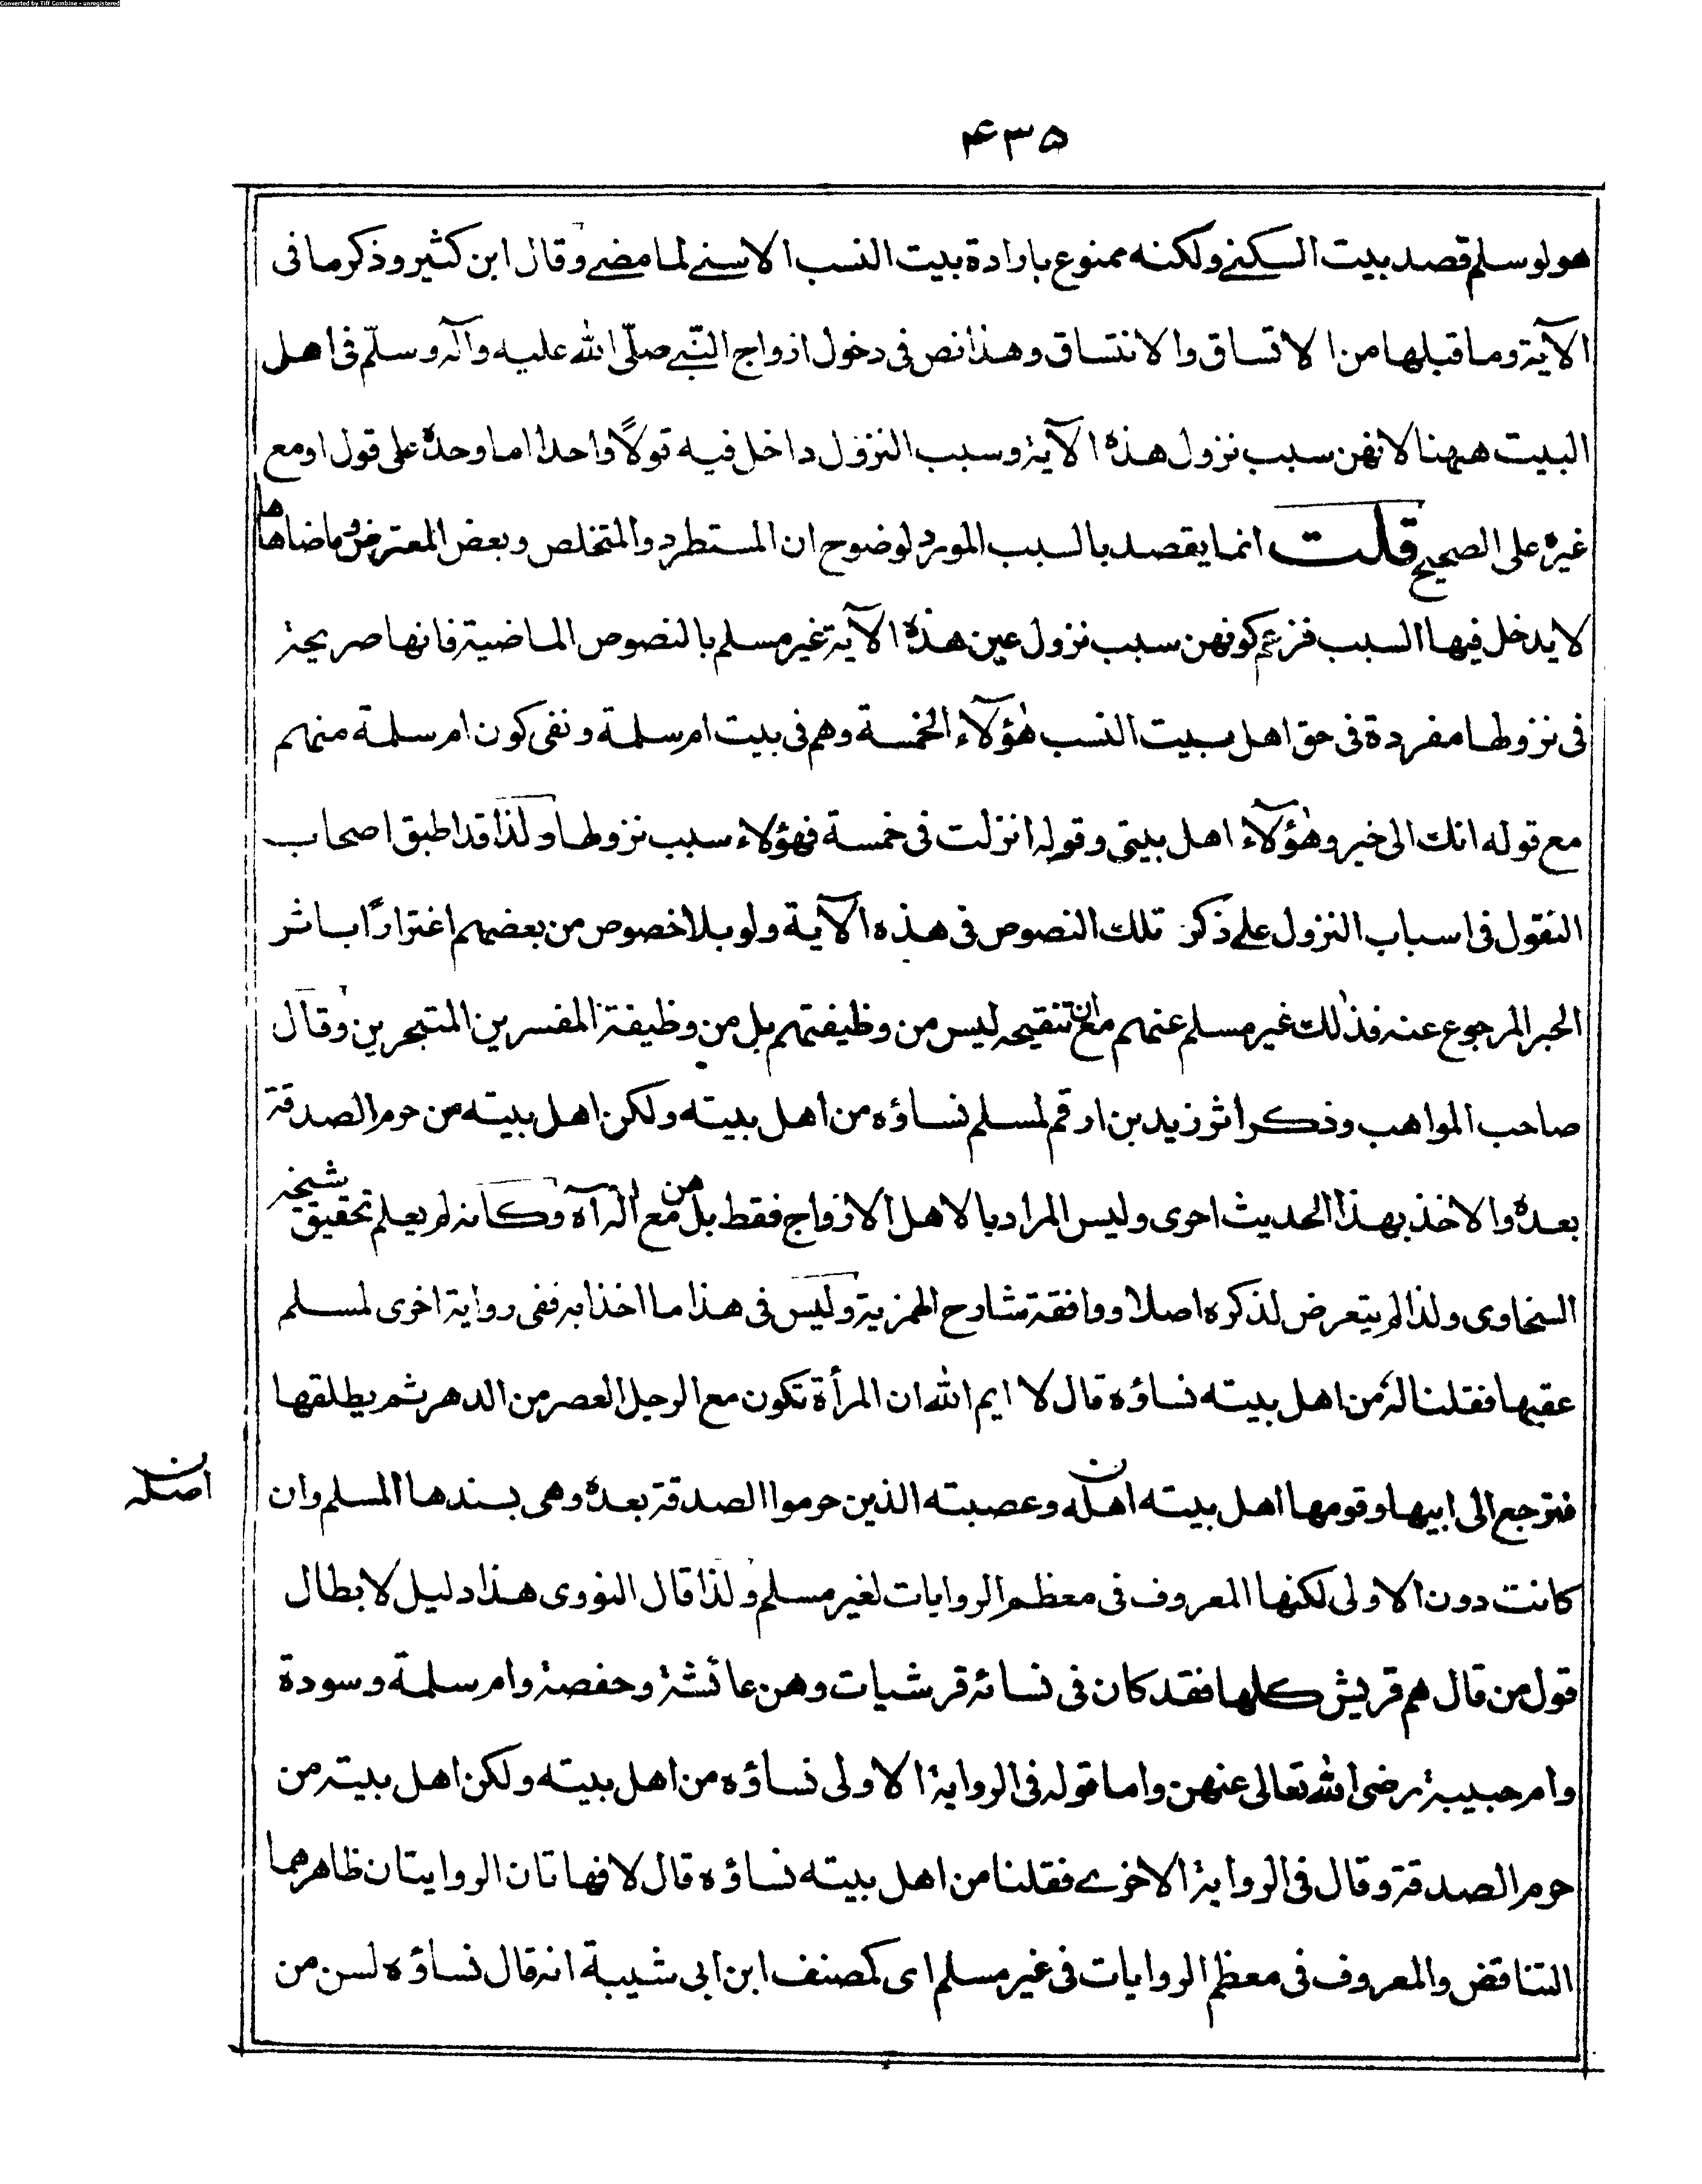 Converted by Tiff Combine - unregistered
۴۳۵
هو لو سلم قصد بيت السكنے ولكنه ممنوع بارادة بيت النسب الاسنے لما مضے وقال ابن كثير وذكر ما فى
الآية وما قبلها من الاتساق والانتساق وهذا نص فى دخول ازواج النبے صلّى الله عليه وآله وسلّم فى اهل
البيت ههنا لانهن سبب نزول هذه الآية وسبب النزول داخل فيه قولاً واحدا اما وحدهٗ على قول او مع
غيره على الصحيح قلت انما يقصد بالسبب المورد لوضوح ان المستطرد والمتخلص وبعض المعترض وما ضاهاها
لا يدخل فيها السبب فزعم كونهن سبب نزول عين هذه الآية غير مسلم بالنصوص الماضية فانها صريحة
فى نزولها مفردة فى حق اهل بيت النسب هٰؤلآء الخمسة وهم فى بيت ام سلمة ونفى كون ام سلمة منهم
مع قوله انك الى خير وهٰؤلآء اهل بيتى وقوله انزلت فى خمسة فهؤلاء سبب نزولها ولذا قد اطبق اصحاب
النقول فى اسباب النزول علے ذكر تلك النصوص فى هذه الآية ولو بلا خصوص من بعضهم اغترارًا باثر
الحبر المرجوع عنه فذٰلك غير مسلم عنهم مع ان تنقيحه ليس من وظيفتهم بل من وظيفة المفسرين المتبحرين وقال
صاحب المواهب وذكر اثر زيد بن ارقم لمسلم نساؤه من اهل بيته ولكن اهل بيته من حرم الصدقة
بعدهٗ والاخذ بهذا الحديث احرى وليس المراد بالاهل الازواج فقط بل هن مع آله اه وكانه لم يعلم تحقيق شيخه
السخاوى ولذا لم يتعرض لذكره اصلا ووافقة شارح الهمزية وليس فى هذا ما اخذا به ففى رواية اخرى لمسلم
عقبها فقلنا لهٗ من اهل بيته نساؤه قال لا ايم الله ان المرأة تكون مع الرجل العصر من الدهر ثم يطلقها
فترجع الى ابيها وقومها اهل بيته اهله وعصبته الذين حرموا الصدقة بعدهٗ وهى بسندها المسلم وان
ن اصله
كانت دون الاولى لكنها المعروف فى معظم الروايات لغير مسلم ولذا قال النووى هذا دليل لابطال
قول من قال هم قريش كلها فقد كان فى نسائه قرشيات وهن عائشة وحفصة وام سلمة وسودة
وام حبيبة رضى الله تعالى عنهن واما قوله فى الرواية الاولى نساؤه من اهل بيته ولكن اهل بيته من
حرم الصدقة وقال فى الرواية الاخرے فقلنا من اهل بيته نساؤه قال لا فهاتان الروايتان ظاهرهما
التناقض والمعروف فى معظم الروايات فى غير مسلم اى كمصنف ابن ابى شيبة انه قال نساؤه لسن من